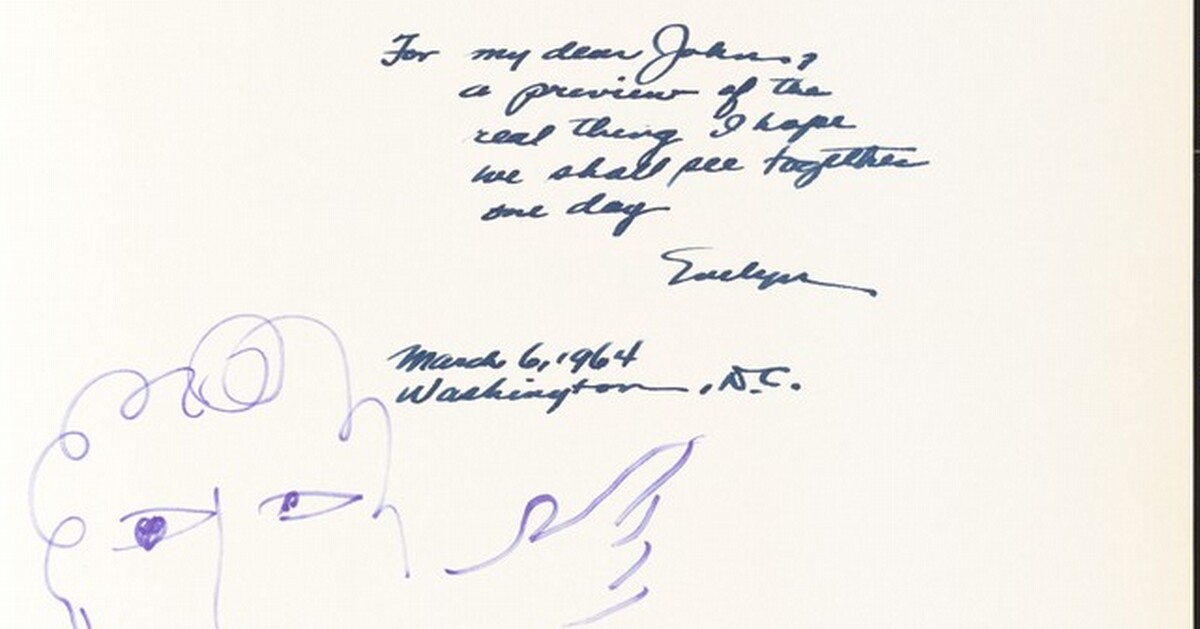 For my dear John,
a preview of the
real thing I hope
we shall see together
one day
Evelyn
March 6, 1964
Washington, D.C.